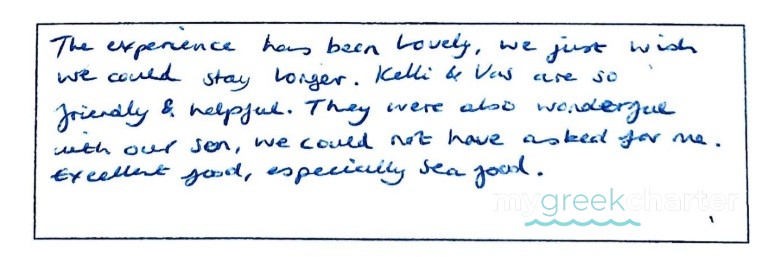 The experience has been lovely, we just wish
we could stay longer. Kelli & Vas are so
friendly & helpful. They were also wonderful
with our son, we could not have asked for me.
Excellent food, especially sea food.
mygreekcharter